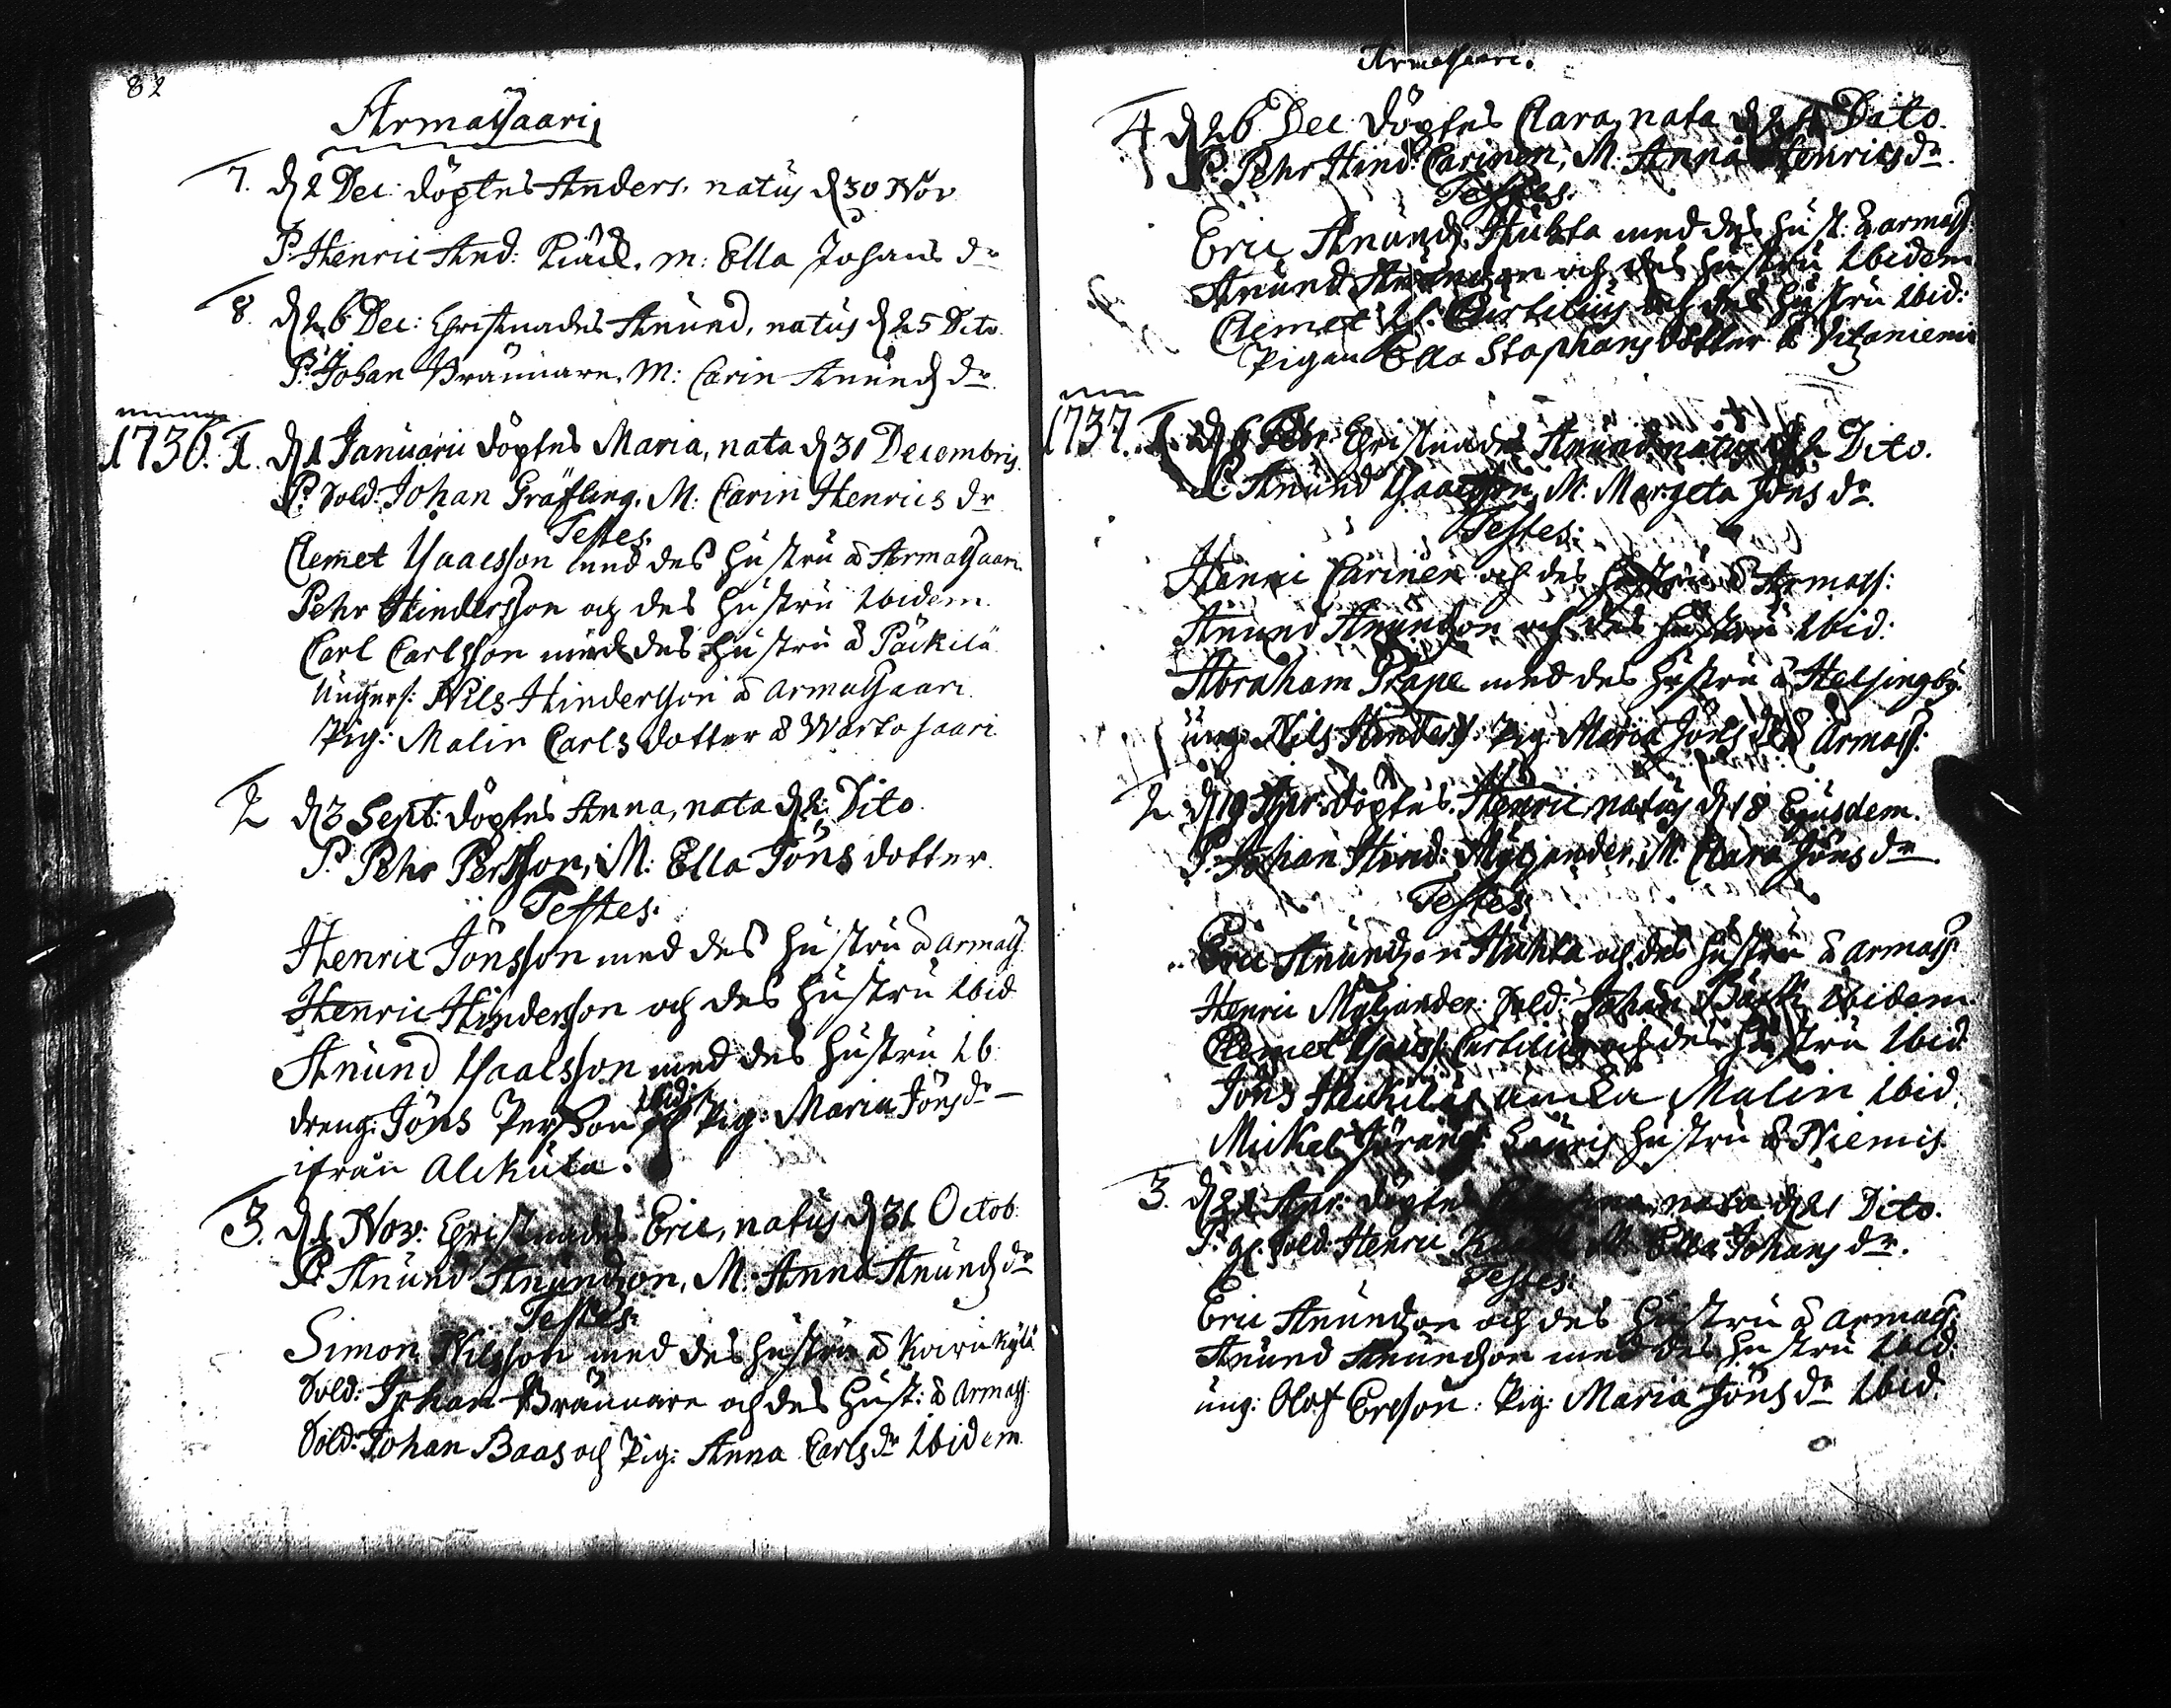 82
Armassaari
7. d 2 Dec: döptes Anders, natus d 30 Nov
P. Henric And: M: Ella Johans dr
8. d 26 Dec: Christnades Anund, natus d 25 Dito
P. Johan Brännare, M: Carin Anunds dr
1736. 1. d 1 Januarii döptes Maria, nata d 31 Decembris
P. Sold: Johan Gräfling, M. Carin Henrics dr
Testes.
Clemet Isaacsson med des hustru å Armassaari
Pehr Hindersson och des hustru ibidem
Carl Carlsson med des hustru å Päkilä
Ungers: Nils Hindersson å Armassaari
Pig: Malin Carls dotter å Wartosaari
2 d 3 Sept: döptes Anna, nata d 2 Dito
P. Pehr Persson, M: Ella Jöns dotter
Testes.
Henric Jönsson med des hustru å armass
Henric Hindersson och des hustru ibid
Anund Isaacsson med des hustru ib
dreng: Jöns Persson ibid: och Pig: Maria Jöns dr
ifrån Alckula.
3. d 1 Nov: Christnades Eric, natus d 31 Octob
P. Anund Anundson, M. Anna Anunds dr
Testes.
Simon Nilsson med des hustru å Koivukylä
Sold: Johan Brännare och des hust: å armass
Sold: Johan Baas och Pig: Anna Carls dr ibidem
Armassaari.
4 d 26 Dec döptes Clara, nata d 24 Dito.
P. Pehr Hind: Carinen, M. Anna Henrics dr.
Testes.
Eric Anunds Huhta med des hust: å armass
Anund Anundson och des hustru ibidem
Clemet Is. Curtilius och des hustru ibid:
Pigan Ella Staphans dotter å Vitaniemi
1737. 1. d 6 Febr Christnades Anund natus d 2 Dito.
P. Anund Isaacsson, M. Margeta Jöns dr.
Testes.
Henric Carinen och des hustru å Armass:
Anund Anundson och des hustru ibid:
Abraham Pråpe med des hustru å Helsingby.
ung: Nils Hinders: Pig: Maria Jöns dr å Armass:
2. d 19 Apr: döptes Henric, natus d 18 Ejusdem.
P. Johan Hind: Myljander, M. Clara Jöns dr
Testes.
Eric Anundson Huhta och des hustru å armass
Henric Myljander: Sold: Johan ibidem
Clemet Isacss: Curtilius och des hustru ibid
Jöns Heikiläs Malin ibid.
Mickel Lauris hustru å Niemis
3. d 22 Apr: döptes nata d 21 Dito.
P. gl. Sold: Henric M. Ella Johans dr.
Testes:
Eric Anundson och des hustru å armass:
Anund Anundson med des hustru ibid:
ung: Olof Ersson: Pig: Maria Jöns dr ibid.